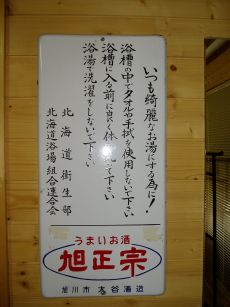 いつも綺麗なお湯にする為に!
浴槽の中でタオルや手拭を使用しないで下さい
浴槽に入る前に良く体 て下さい
浴湯で洗濯をしないで下さい
北海道衛生部
北海道浴場組合連合会
うまいお酒
旭正宗
旭川市 大谷酒造